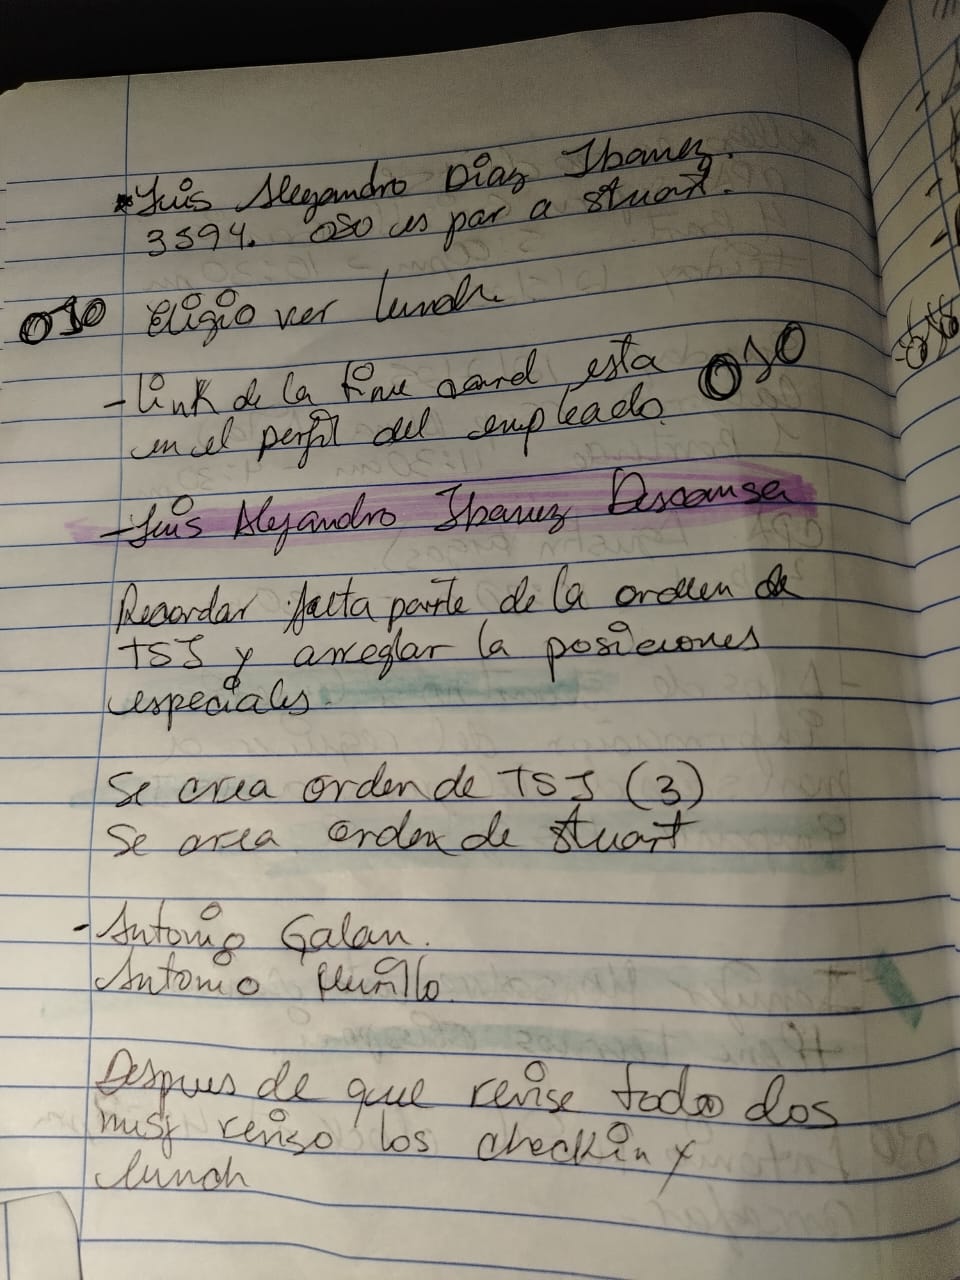 *Luis Alejandro Diaz Ibanez.
3594. OSO es par a Stuart.
OJO Eligio ver lunch
- Link de la time card esta OJO
en el perfil del empleado.
- Luis Alejandro Ibanez Descansa
Recordar falta parte de la orden de
TSJ y arreglar la posiciones
especiales.
Se crea orden de TSJ (3)
Se crea orden de Stuart
- Antonio Galan.
Antonio Murillo.
Despues de que revise todo dos
reviso los checkin y
lunch